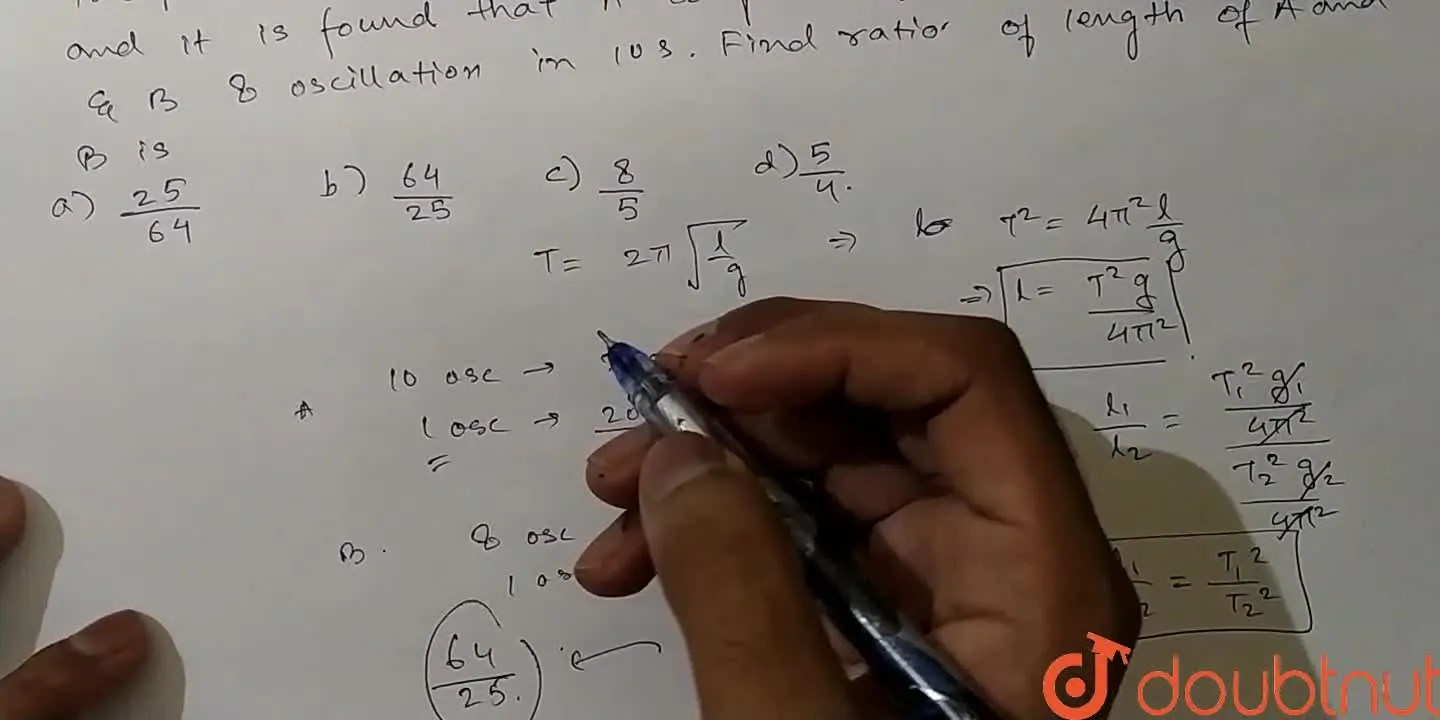 found that
and it is found that
& B 8 oscillation in 10s. Find ratio of length of A and
B is
a) 25/64 b) 64/25 c) 8/5 d) 5/4.
T = 2π √(l/g) ⇒ T² = 4π² l/g
⇒ l = T² g / 4π²
10 osc →
A 1 osc → 20
l₁/l₂ = (T₁² g₁ / 4π²) / (T₂² g₂ / 4π²)
B. 8 osc
1 os
= T₁²/T₂²
64/25.
doubtnut